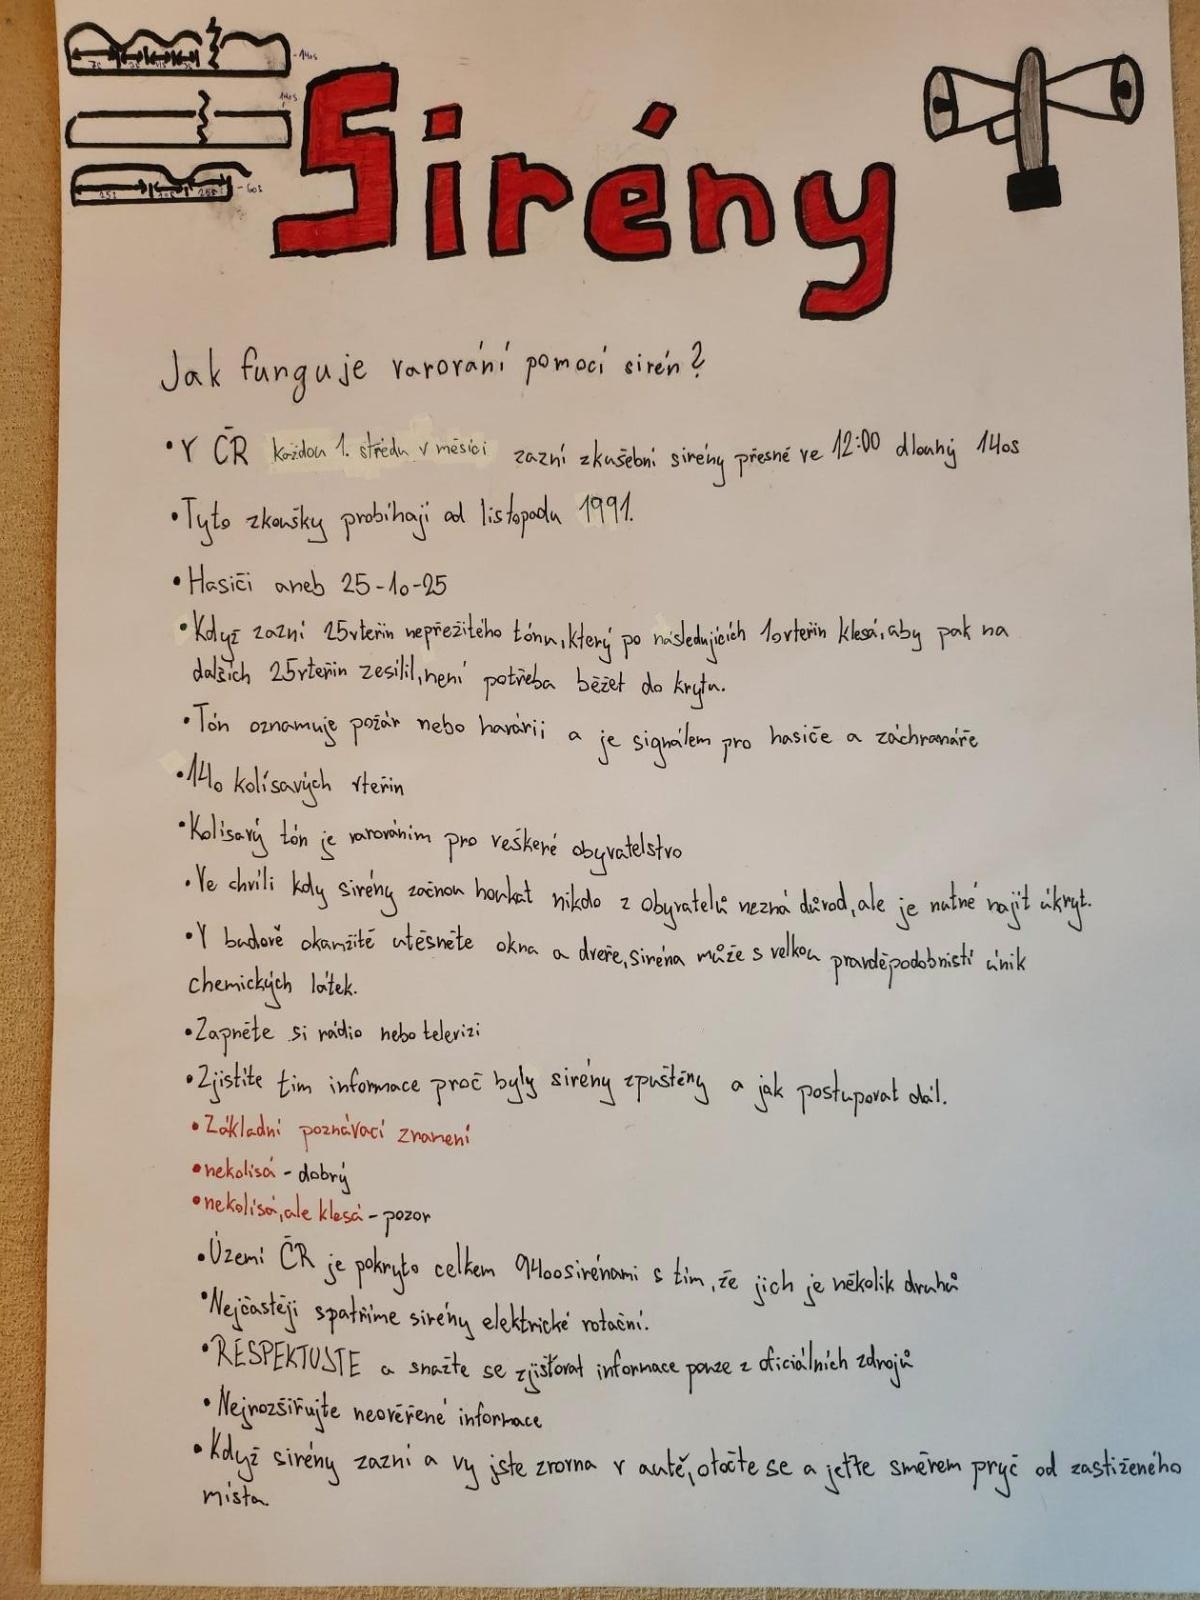 140s
7s
140s
60s
25s
25s
Sirény
Jak funguje varování pomocí sirén?
• V ČR každou 1. středu v měsíci zazní zkušební sirény přesně ve 12:00 dlouhý 140s
• Tyto zkoušky probíhají od listopadu 1991.
• Hasiči aneb 25-10-25
• Když zazní 25vteřin nepřežitého tónu, který po následujících 10vteřin klesá, aby pak na
dalších 25vteřin zesílil, není potřeba běžet do krytu.
• Tón oznamuje požár nebo havárii a je signálem pro hasiče a záchranáře
• 140 kolísavých vteřin
• Kolísavý tón je varováním pro veškeré obyvatelstvo
• Ve chvíli kdy sirény začnou houkat nikdo z obyvatelů nezná důvod, ale je nutné najít úkryt.
• V budově okamžitě utěsněte okna a dveře, siréna může s velkou pravděpodobnistí únik
chemických látek.
• Zapněte si rádio nebo televizi
• Zjistíte tím informace proč byly sirény zpuštěny a jak postupovat dál.
• Základní poznávací znamení
• nekolísá - dobrý
• nekolísá, ale klesá - pozor
• Území ČR je pokryto celkem 9400sirénami s tím, že jich je několik druhů
• Nejčastěji spatříme sirény elektrické rotační.
• RESPEKTUJTE a snažte se zjišťovat informace pouze z oficiálních zdrojů
• Nejrozšiřujte neověřené informace
• Když sirény zazní a vy jste zrovna v autě, otočte se a jeťte směrem pryč od zastiženého
místa